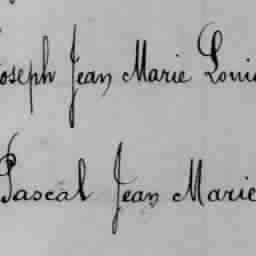 Joseph Jean Marie Louis
Pascal Jean Marie